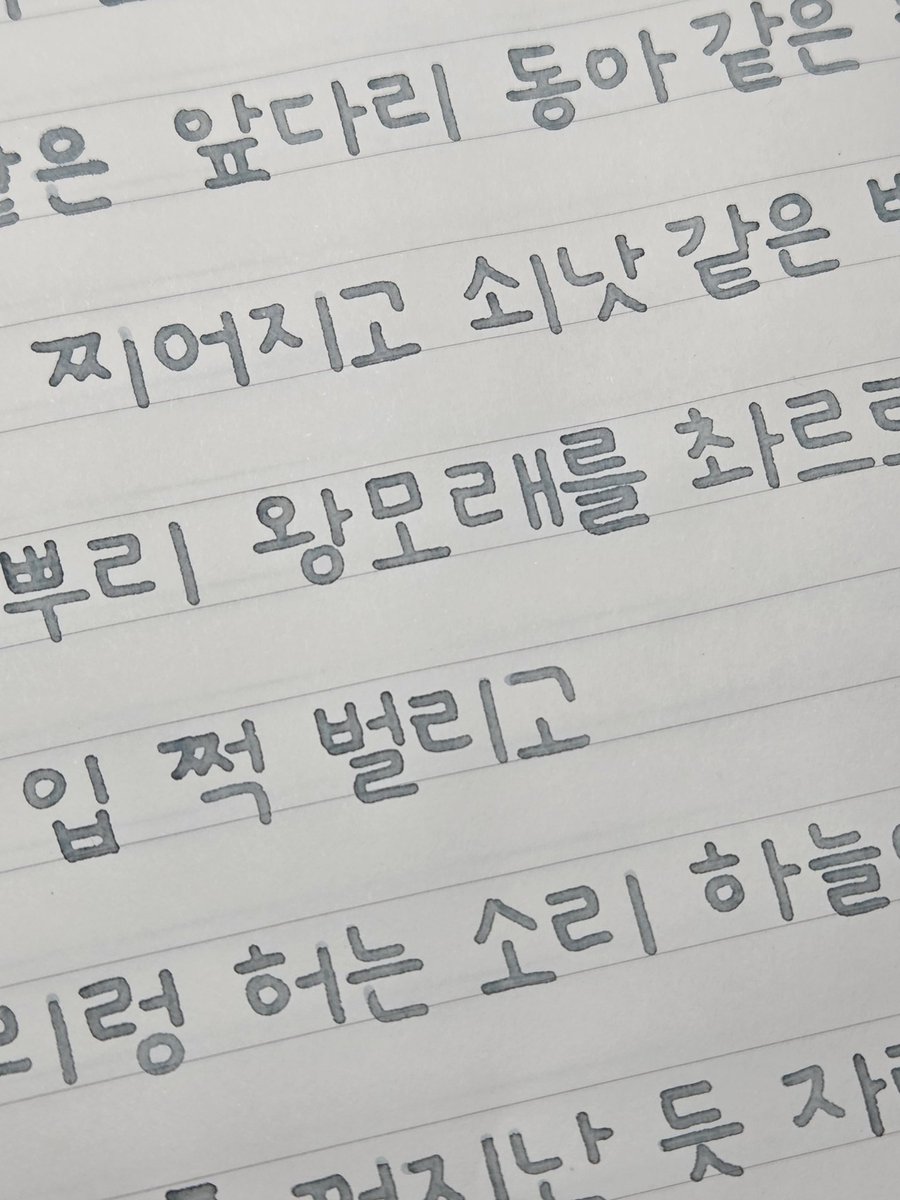 같은 앞다리 동아 같은
찌어지고 쇠낫 같은
뿌리 왕모래를 촤르르
입 쩍 벌리고
의렁 허는 소리 하늘이
꺼지난 듯